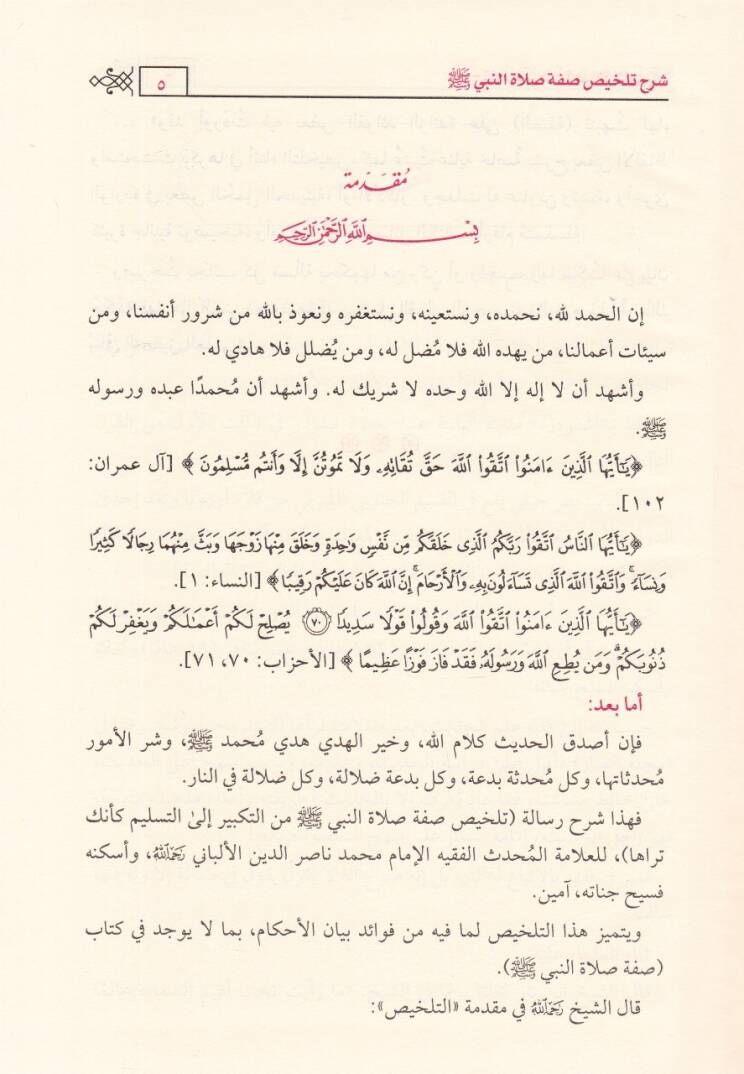 شرح تلخيص صفة صلاة النبي ﷺ
٥
مُقدّمة
بِسْمِ اللَّهِ الرَّحْمَنِ الرَّحِيمِ
إن الحمد لله، نحمده، ونستعينه، ونستغفره ونعوذ بالله من شرور أنفسنا، ومن
سيئات أعمالنا، من يهده الله فلا مُضل له، ومن يُضلل فلا هادي له.
وأشهد أن لا إله إلا الله وحده لا شريك له. وأشهد أن مُحمدًا عبده ورسوله
ﷺ.
﴿يَٰٓأَيُّهَا ٱلَّذِينَ ءَامَنُوا۟ ٱتَّقُوا۟ ٱللَّهَ حَقَّ تُقَاتِهِۦ وَلَا تَمُوتُنَّ إِلَّا وَأَنتُم مُّسْلِمُونَ﴾ [آل عمران:
١٠٢].
﴿يَٰٓأَيُّهَا ٱلنَّاسُ ٱتَّقُوا۟ رَبَّكُمُ ٱلَّذِى خَلَقَكُم مِّن نَّفْسٍ وَٰحِدَةٍ وَخَلَقَ مِنْهَا زَوْجَهَا وَبَثَّ مِنْهُمَا رِجَالًا كَثِيرًا
وَنِسَآءً ۚ وَٱتَّقُوا۟ ٱللَّهَ ٱلَّذِى تَسَآءَلُونَ بِهِۦ وَٱلْأَرْحَامَ ۚ إِنَّ ٱللَّهَ كَانَ عَلَيْكُمْ رَقِيبًا﴾ [النساء: ١].
﴿يَٰٓأَيُّهَا ٱلَّذِينَ ءَامَنُوا۟ ٱتَّقُوا۟ ٱللَّهَ وَقُولُوا۟ قَوْلًا سَدِيدًا ۝٧٠ يُصْلِحْ لَكُمْ أَعْمَٰلَكُمْ وَيَغْفِرْ لَكُمْ
ذُنُوبَكُمْ ۗ وَمَن يُطِعِ ٱللَّهَ وَرَسُولَهُۥ فَقَدْ فَازَ فَوْزًا عَظِيمًا﴾ [الأحزاب: ٧٠، ٧١].
أما بعد:
فإن أصدق الحديث كلام الله، وخير الهدي هدي مُحمد ﷺ، وشر الأمور
مُحدثاتها، وكل مُحدثة بدعة، وكل بدعة ضلالة، وكل ضلالة في النار.
فهذا شرح رسالة (تلخيص صفة صلاة النبي ﷺ من التكبير إلىٰ التسليم كأنك
تراها)، للعلامة المُحدث الفقيه الإمام محمد ناصر الدين الألباني رَحِمَهُ اللَّهُ، وأسكنه
فسيح جناته، آمين.
ويتميز هذا التلخيص لما فيه من فوائد بيان الأحكام، بما لا يوجد في كتاب
(صفة صلاة النبي ﷺ).
قال الشيخ رَحِمَهُ اللَّهُ في مقدمة «التلخيص»: